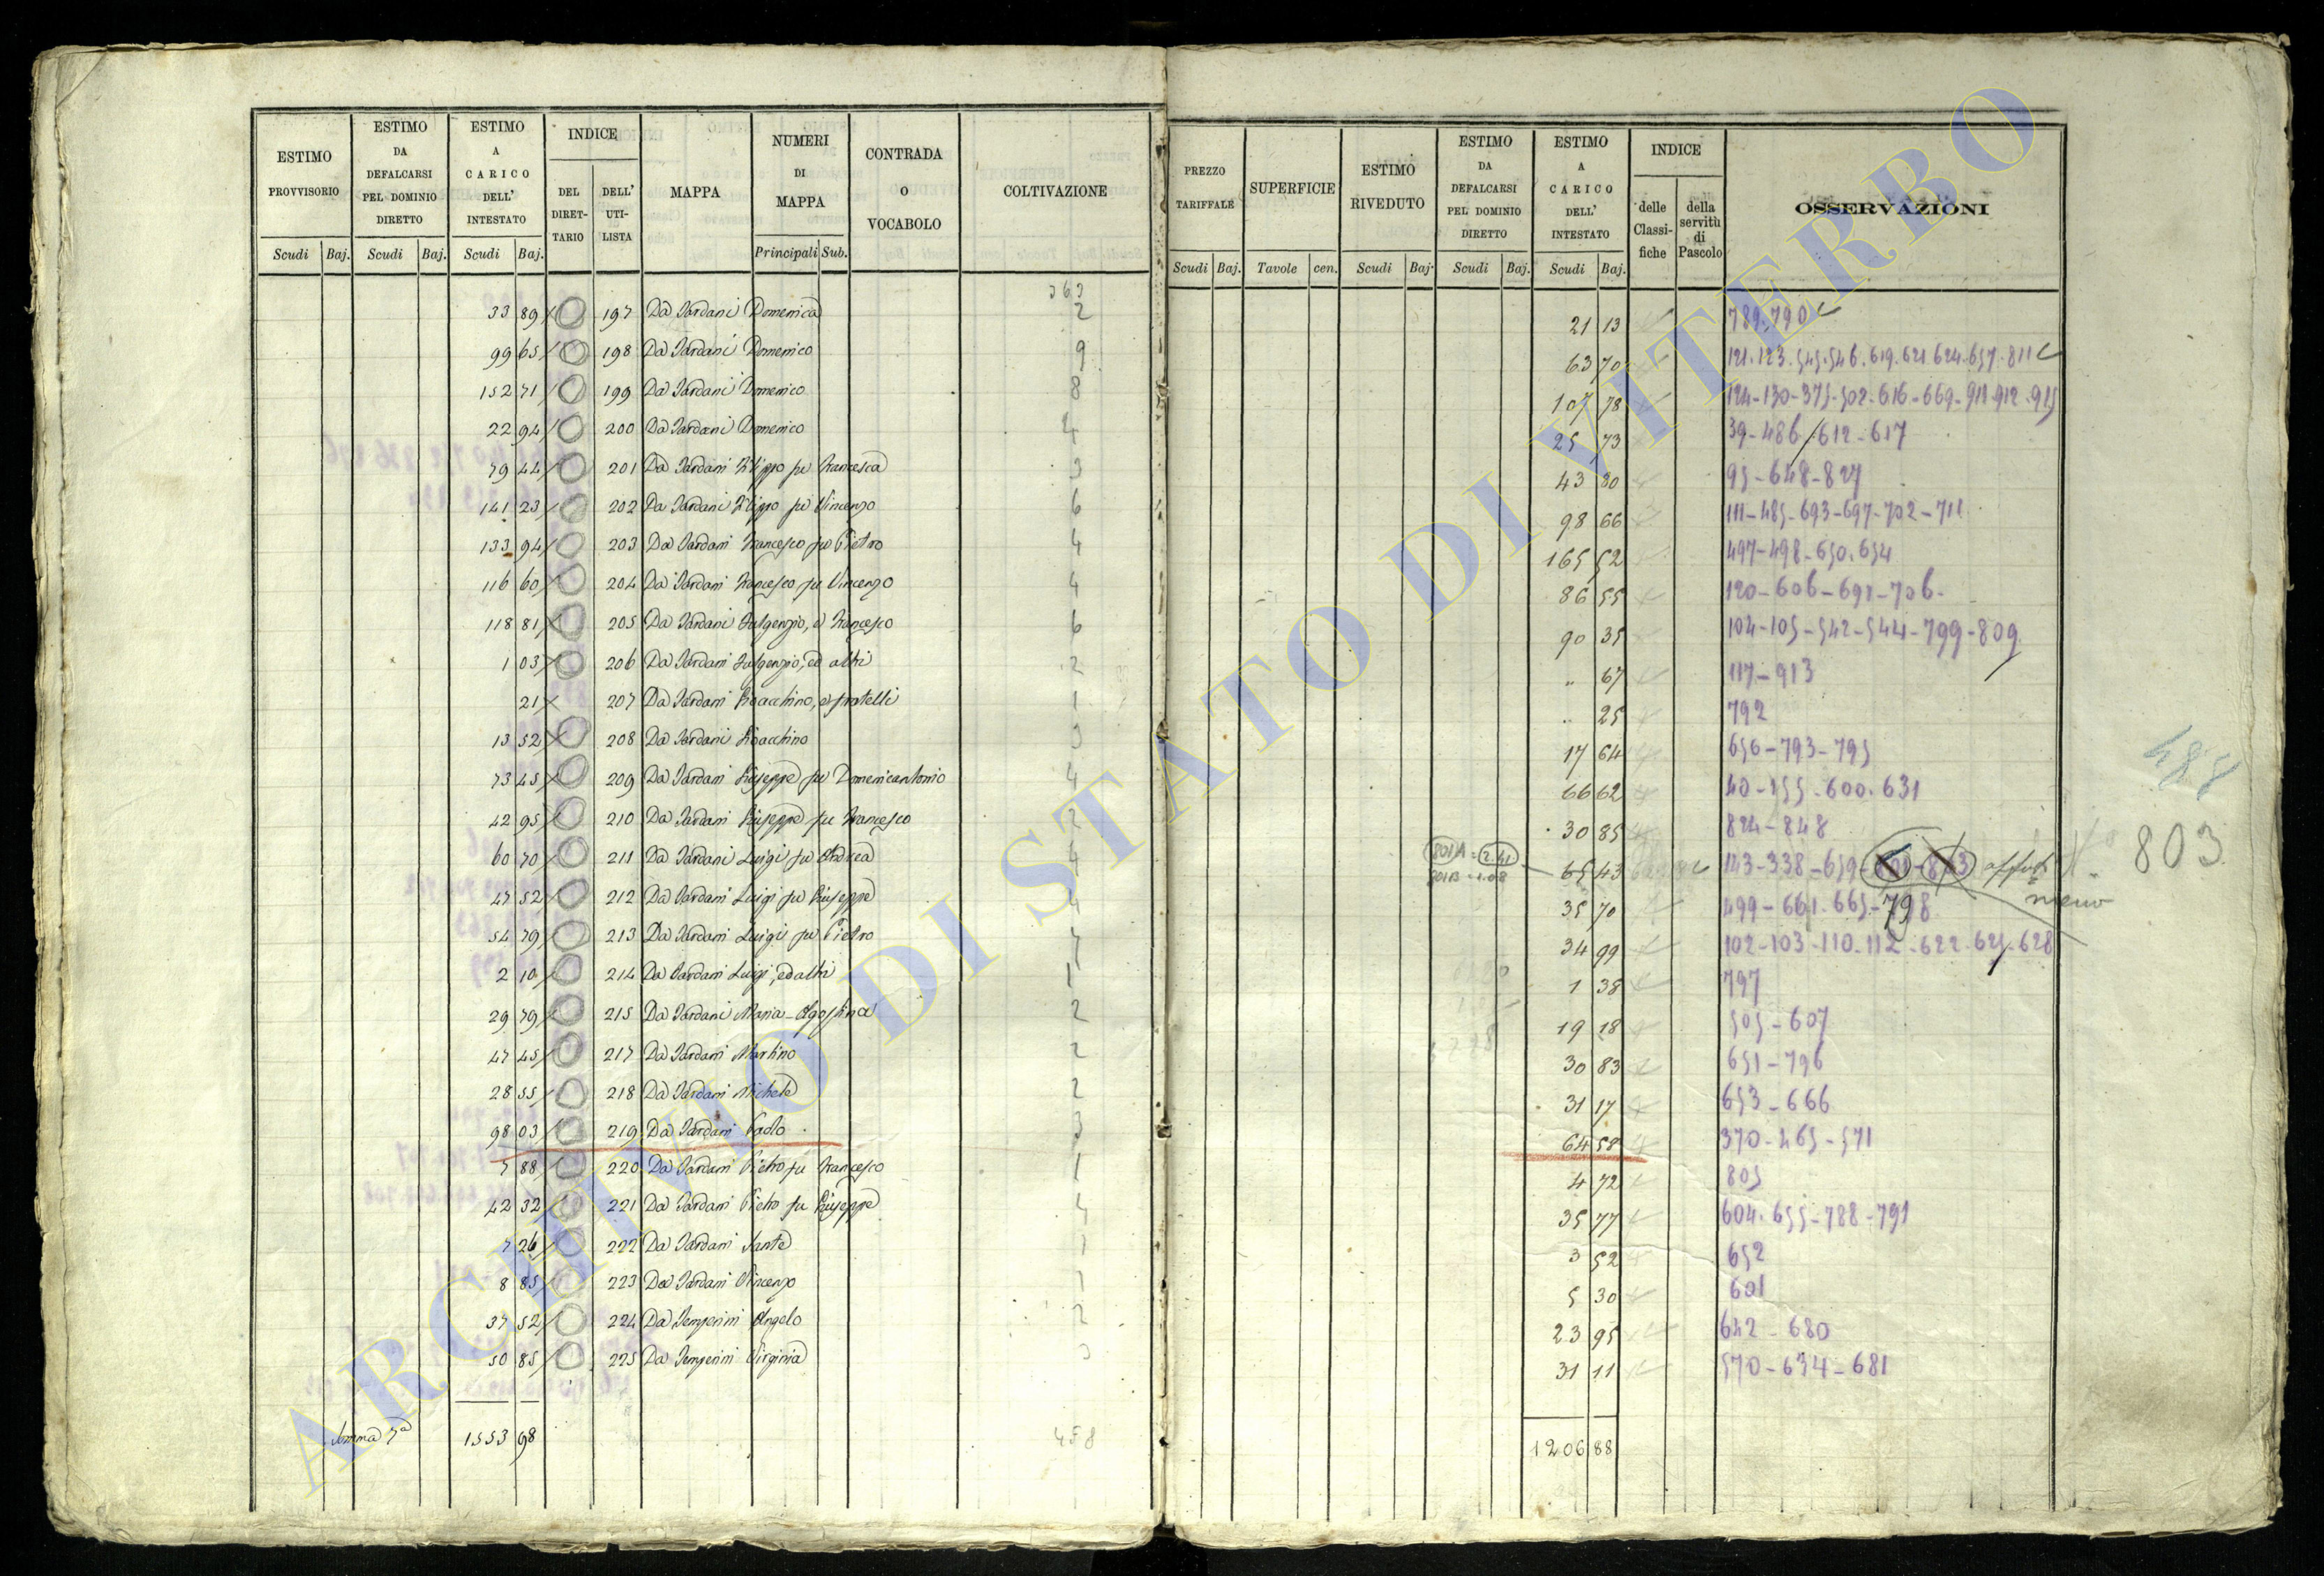 ESTIMO PROVVISORIO | ESTIMO DA DEFALCARSI PEL DOMINIO DIRETTO | ESTIMO A CARICO DELL' INTESTATO | INDICE | MAPPA | NUMERI DI MAPPA | CONTRADA O VOCABOLO | COLTIVAZIONE | PREZZO TARIFFALE | SUPERFICIE | ESTIMO RIVEDUTO | ESTIMO DA DEFALCARSI PEL DOMINIO DIRETTO | ESTIMO A CARICO DELL' INTESTATO | INDICE | OSSERVAZIONI
DEL DIRETTARIO | DELL' UTILISTA | delle Classifiche | della servitù di Pascolo
Scudi | Baj. | Scudi | Baj. | Scudi | Baj. | Principali | Sub. | Scudi | Baj. | Tavole | cen. | Scudi | Baj. | Scudi | Baj. | Scudi | Baj.
363
33 89 197 Da Iardani Domenica 2 21 13 789.790
99 65 198 Da Iardani Domenico 9 63 70 121.123.545.546.619.621.624.657.811
152 71 199 Da Iardani Domenico 8 107 78 124-130-375-502-616-669-911-912-915
22 94 200 Da Iardani Domenico 4 25 73 39-486-612-617
79 44 201 Da Iardani Filippo fu Francesca 3 43 80 95-648-827
141 23 202 Da Iardani Filippo fu Vincenzo 6 98 66 111-485-693-697-702-711
133 94 203 Da Iardani Francesco fu Pietro 4 165 52 497-498-650.654
116 60 204 Da Iardani Francesco fu Vincenzo 4 86 55 120-606-691-706
118 81 205 Da Iardani Fulgenzio, e Francesco 6 90 35 104-105-542-544-799-809
1 03 206 Da Iardani Fulgenzio, ed altri 2 " 67 117-913
21 207 Da Iardani Gioacchino, e fratelli 1 " 25 792
13 52 208 Da Iardani Gioacchino 3 17 64 656-793-795
73 45 209 Da Iardani Giuseppe fu Domenicantonio 4 66 62 40-155-600.631
488
42 95 210 Da Iardani Giuseppe fu Francesco 2 30 85 824-848
803
60 70 211 Da Iardani Luigi fu Andrea 4 801A = 2.41 65 43 143-338-659-801-803
801B = 1.08
47 52 212 Da Iardani Luigi fu Giuseppe 4 35 70 499-661.665-798
meno
54 79 213 Da Iardani Luigi fu Pietro 7 34 99 102-103-110-112-622-625-628
2 10 214 Da Iardani Luigi, ed altri 1 1 38 797
29 79 215 Da Iardani Maria-Agostina 2 19 18 505-607
47 45 217 Da Iardani Martino 2 30 83 651-796
28 55 218 Da Iardani Michele 2 31 17 653-666
98 03 219 Da Iardani Paolo 3 64 58 370-465-571
7 88 220 Da Iardani Pietro fu Francesco 1 4 72 805
42 32 221 Da Iardani Pietro fu Giuseppe 4 35 77 604.655-788-791
7 26 222 Da Iardani Sante 1 3 52 652
8 85 223 Da Iardani Vincenzo 1 5 30 601
37 52 224 Da Temperini Angelo 2 23 95 642-680
50 85 225 Da Temperini Virginia 3 31 11 570-634-681
Somma 7a 1553 98 458 1206 88
ARCHIVIO DI STATO DI VITERBO